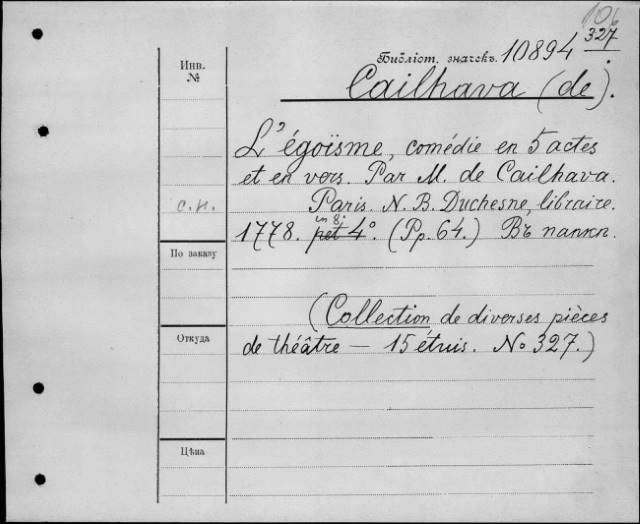 106
Инв. №
Библіот. значекъ. 10894 327.
Cailhava (de).
L'égoïsme, comédie en 5 actes
et en vers. Par M. de Cailhava.
с.н. Paris. N. B. Duchesne, libraire.
in 8;
1778. pet 4°. (Pp. 64.) Въ папкѣ.
По заказу
(Collection de diverses pièces
Откуда
de théâtre — 15 étuis. No 327.)
Цѣна